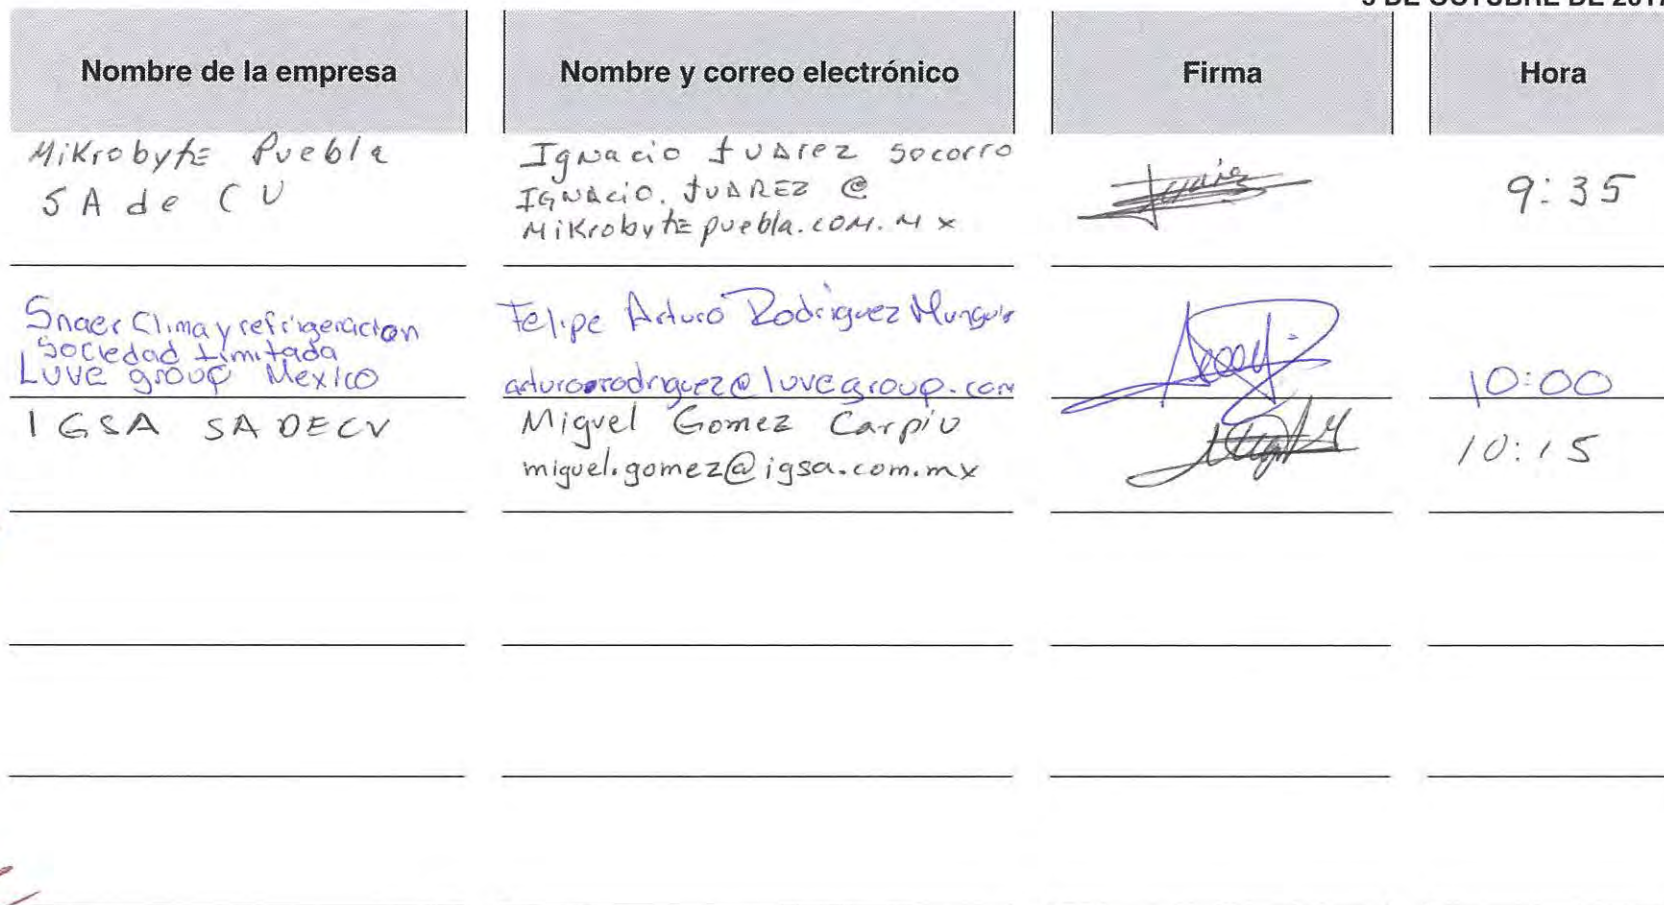 DE OCTUBRE DE 2017
Nombre de la empresa Nombre y correo electrónico Firma Hora
Mikrobyte Puebla
SA de CV
Ignacio Juarez Socorro
IGNACIO.JUAREZ@
Mikrobytepuebla.com.mx
9:35
Snaer Clima y refrigeracion
Sociedad Limitada
Luve group Mexico
Felipe Arturo Rodriguez Munguia
arturo.rodriguez@luvegroup.com
10:00
IGSA SA DE CV
Miguel Gomez Carpio
miguel.gomez@igsa.com.mx
10:15